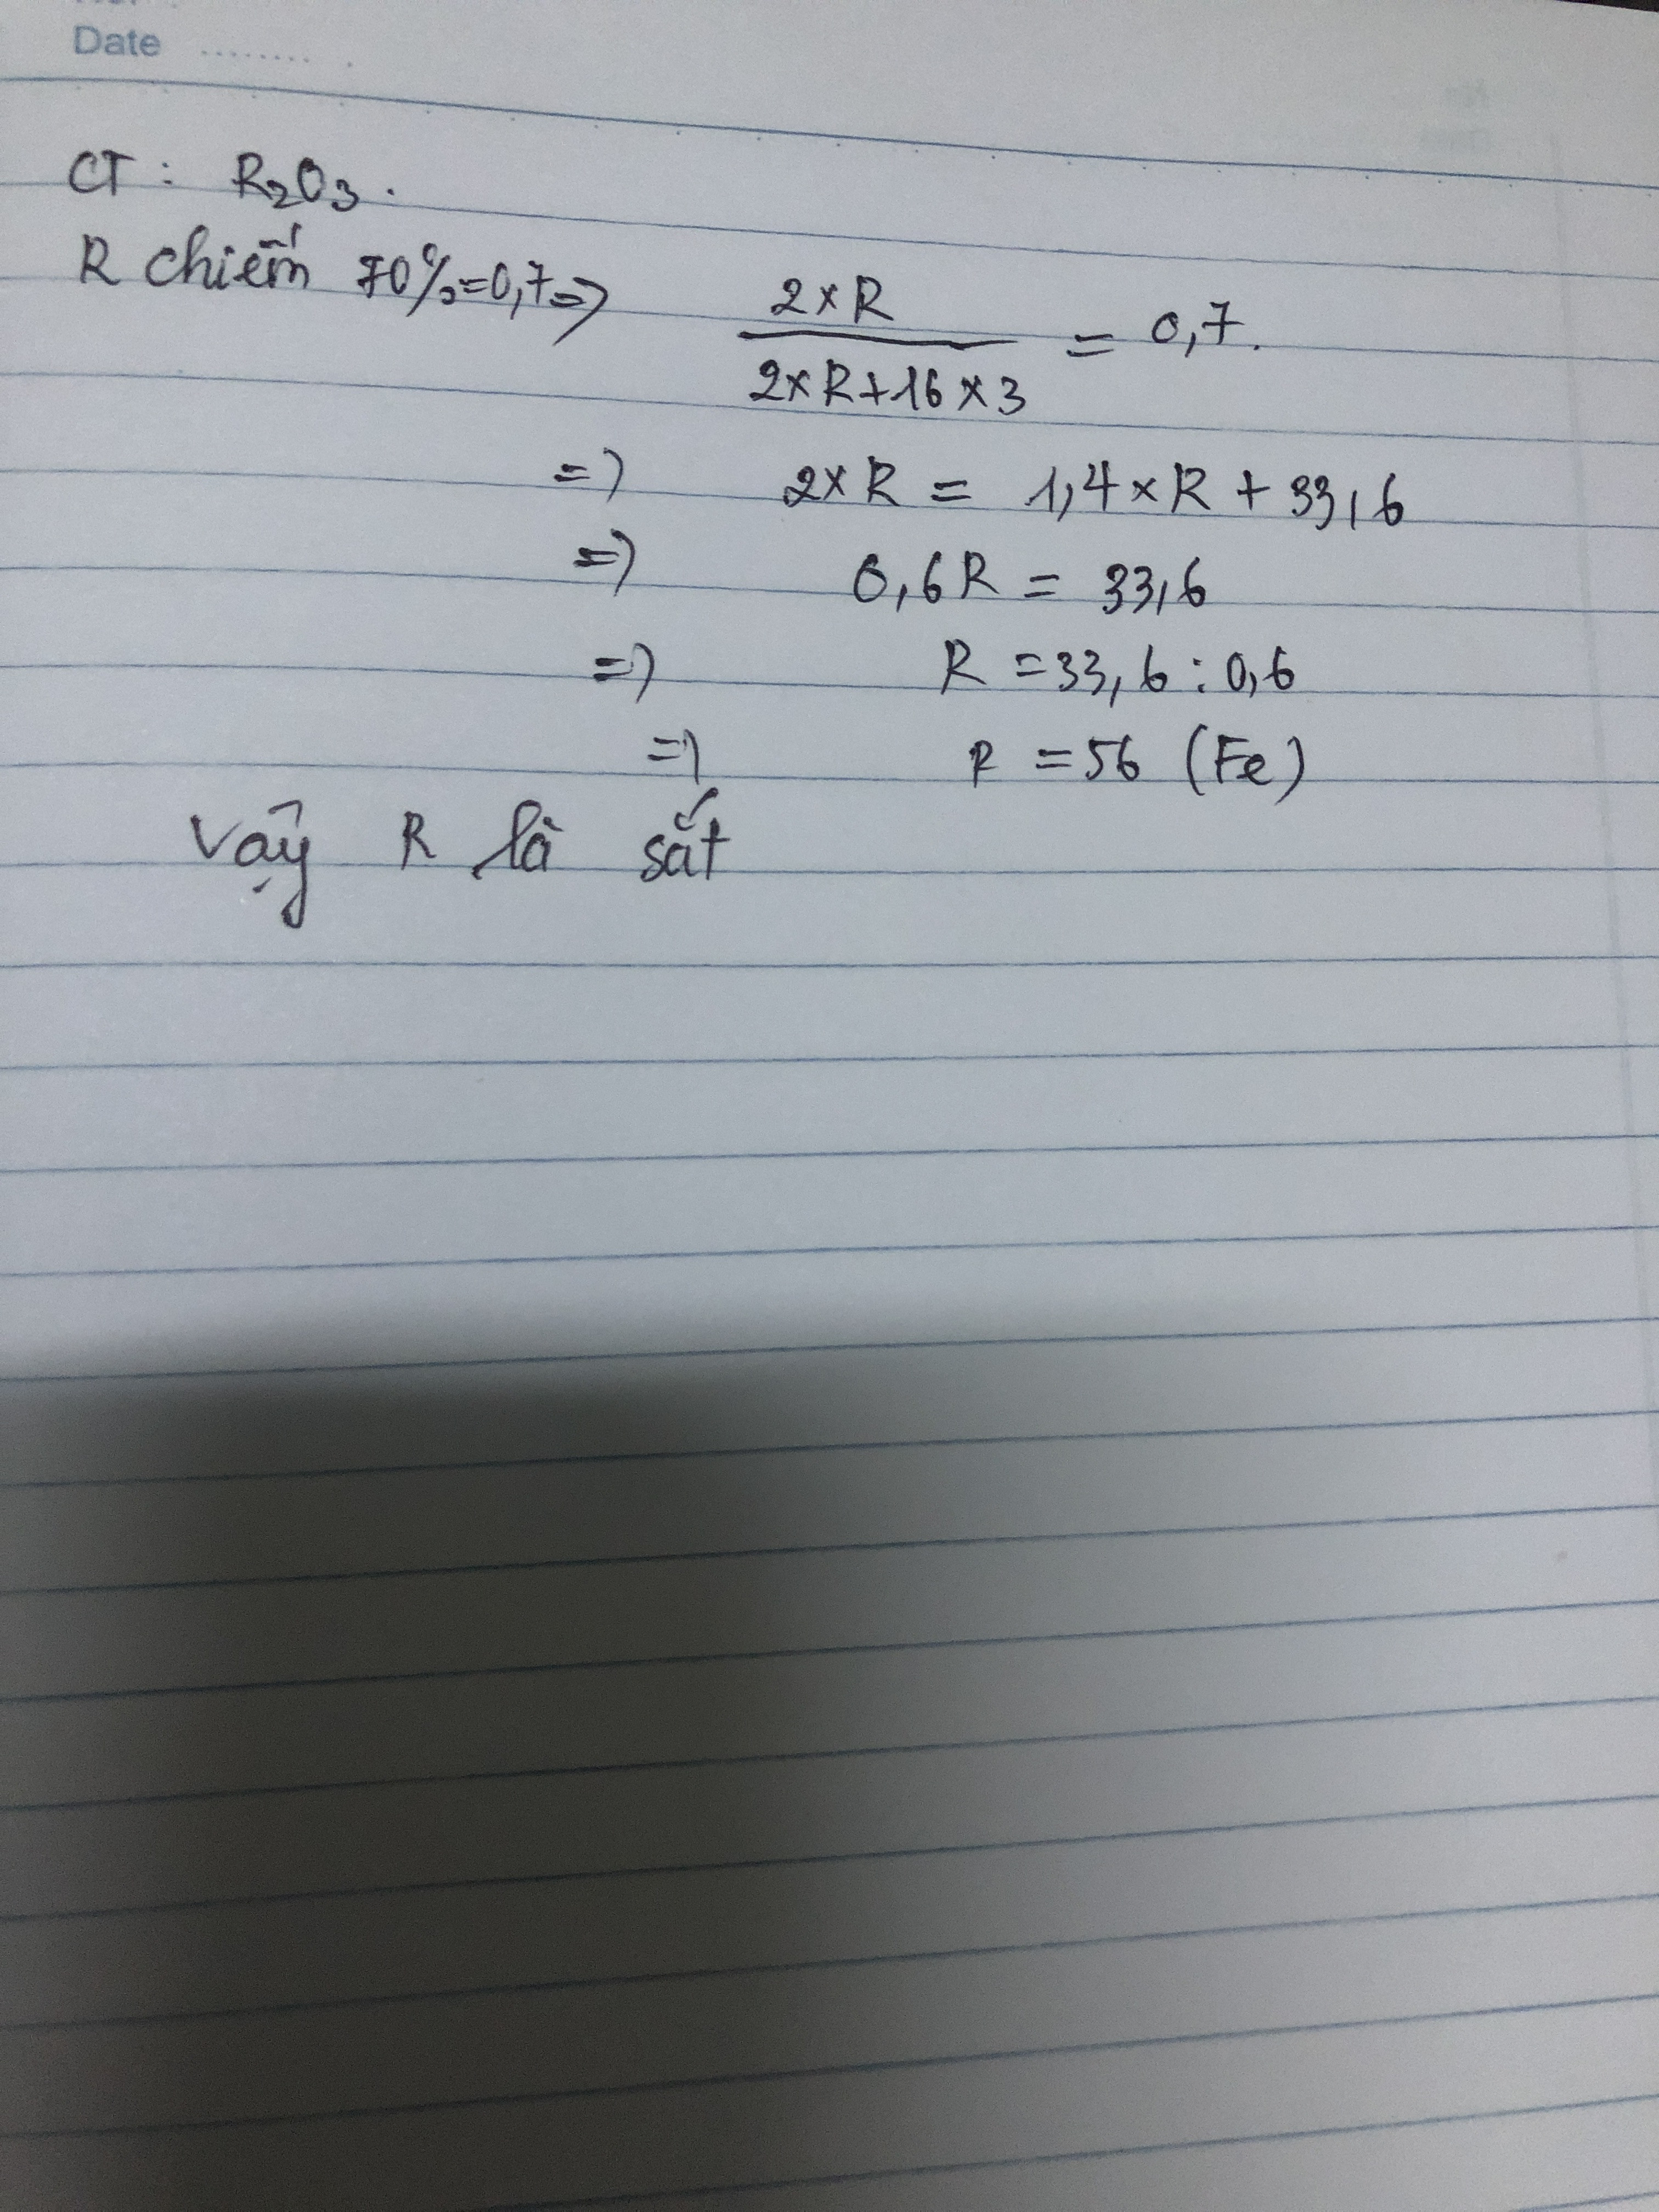 Date ........
CT : R₂O₃.
R chiếm 70%=0,7=> (2×R)/(2×R+16×3) = 0,7.
=> 2×R = 1,4×R + 33,6
=> 0,6R = 33,6
=> R =33,6 : 0,6
=> R =56 (Fe)
Vậy R là sắt